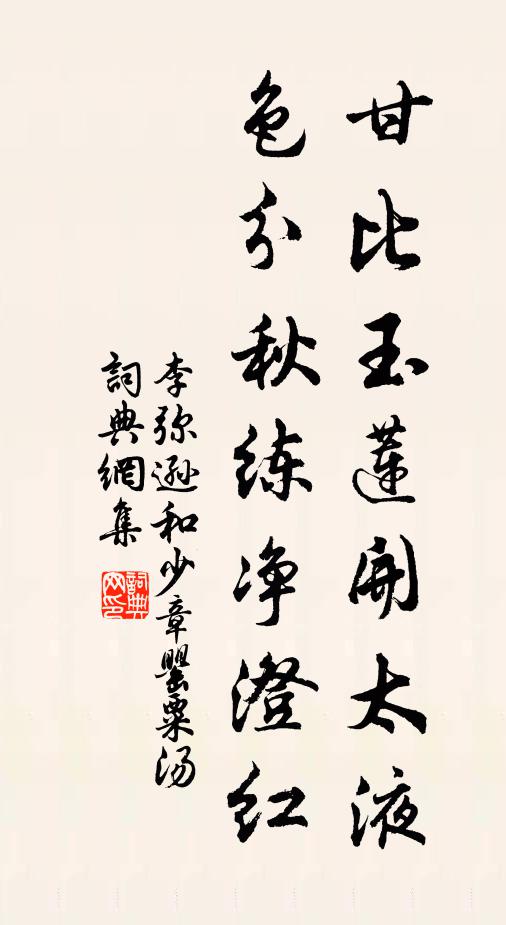 甘比玉蓮開太液
色分秋练净澄红
李弥遜和少章罂粟汤
詞典網集
詞典网印